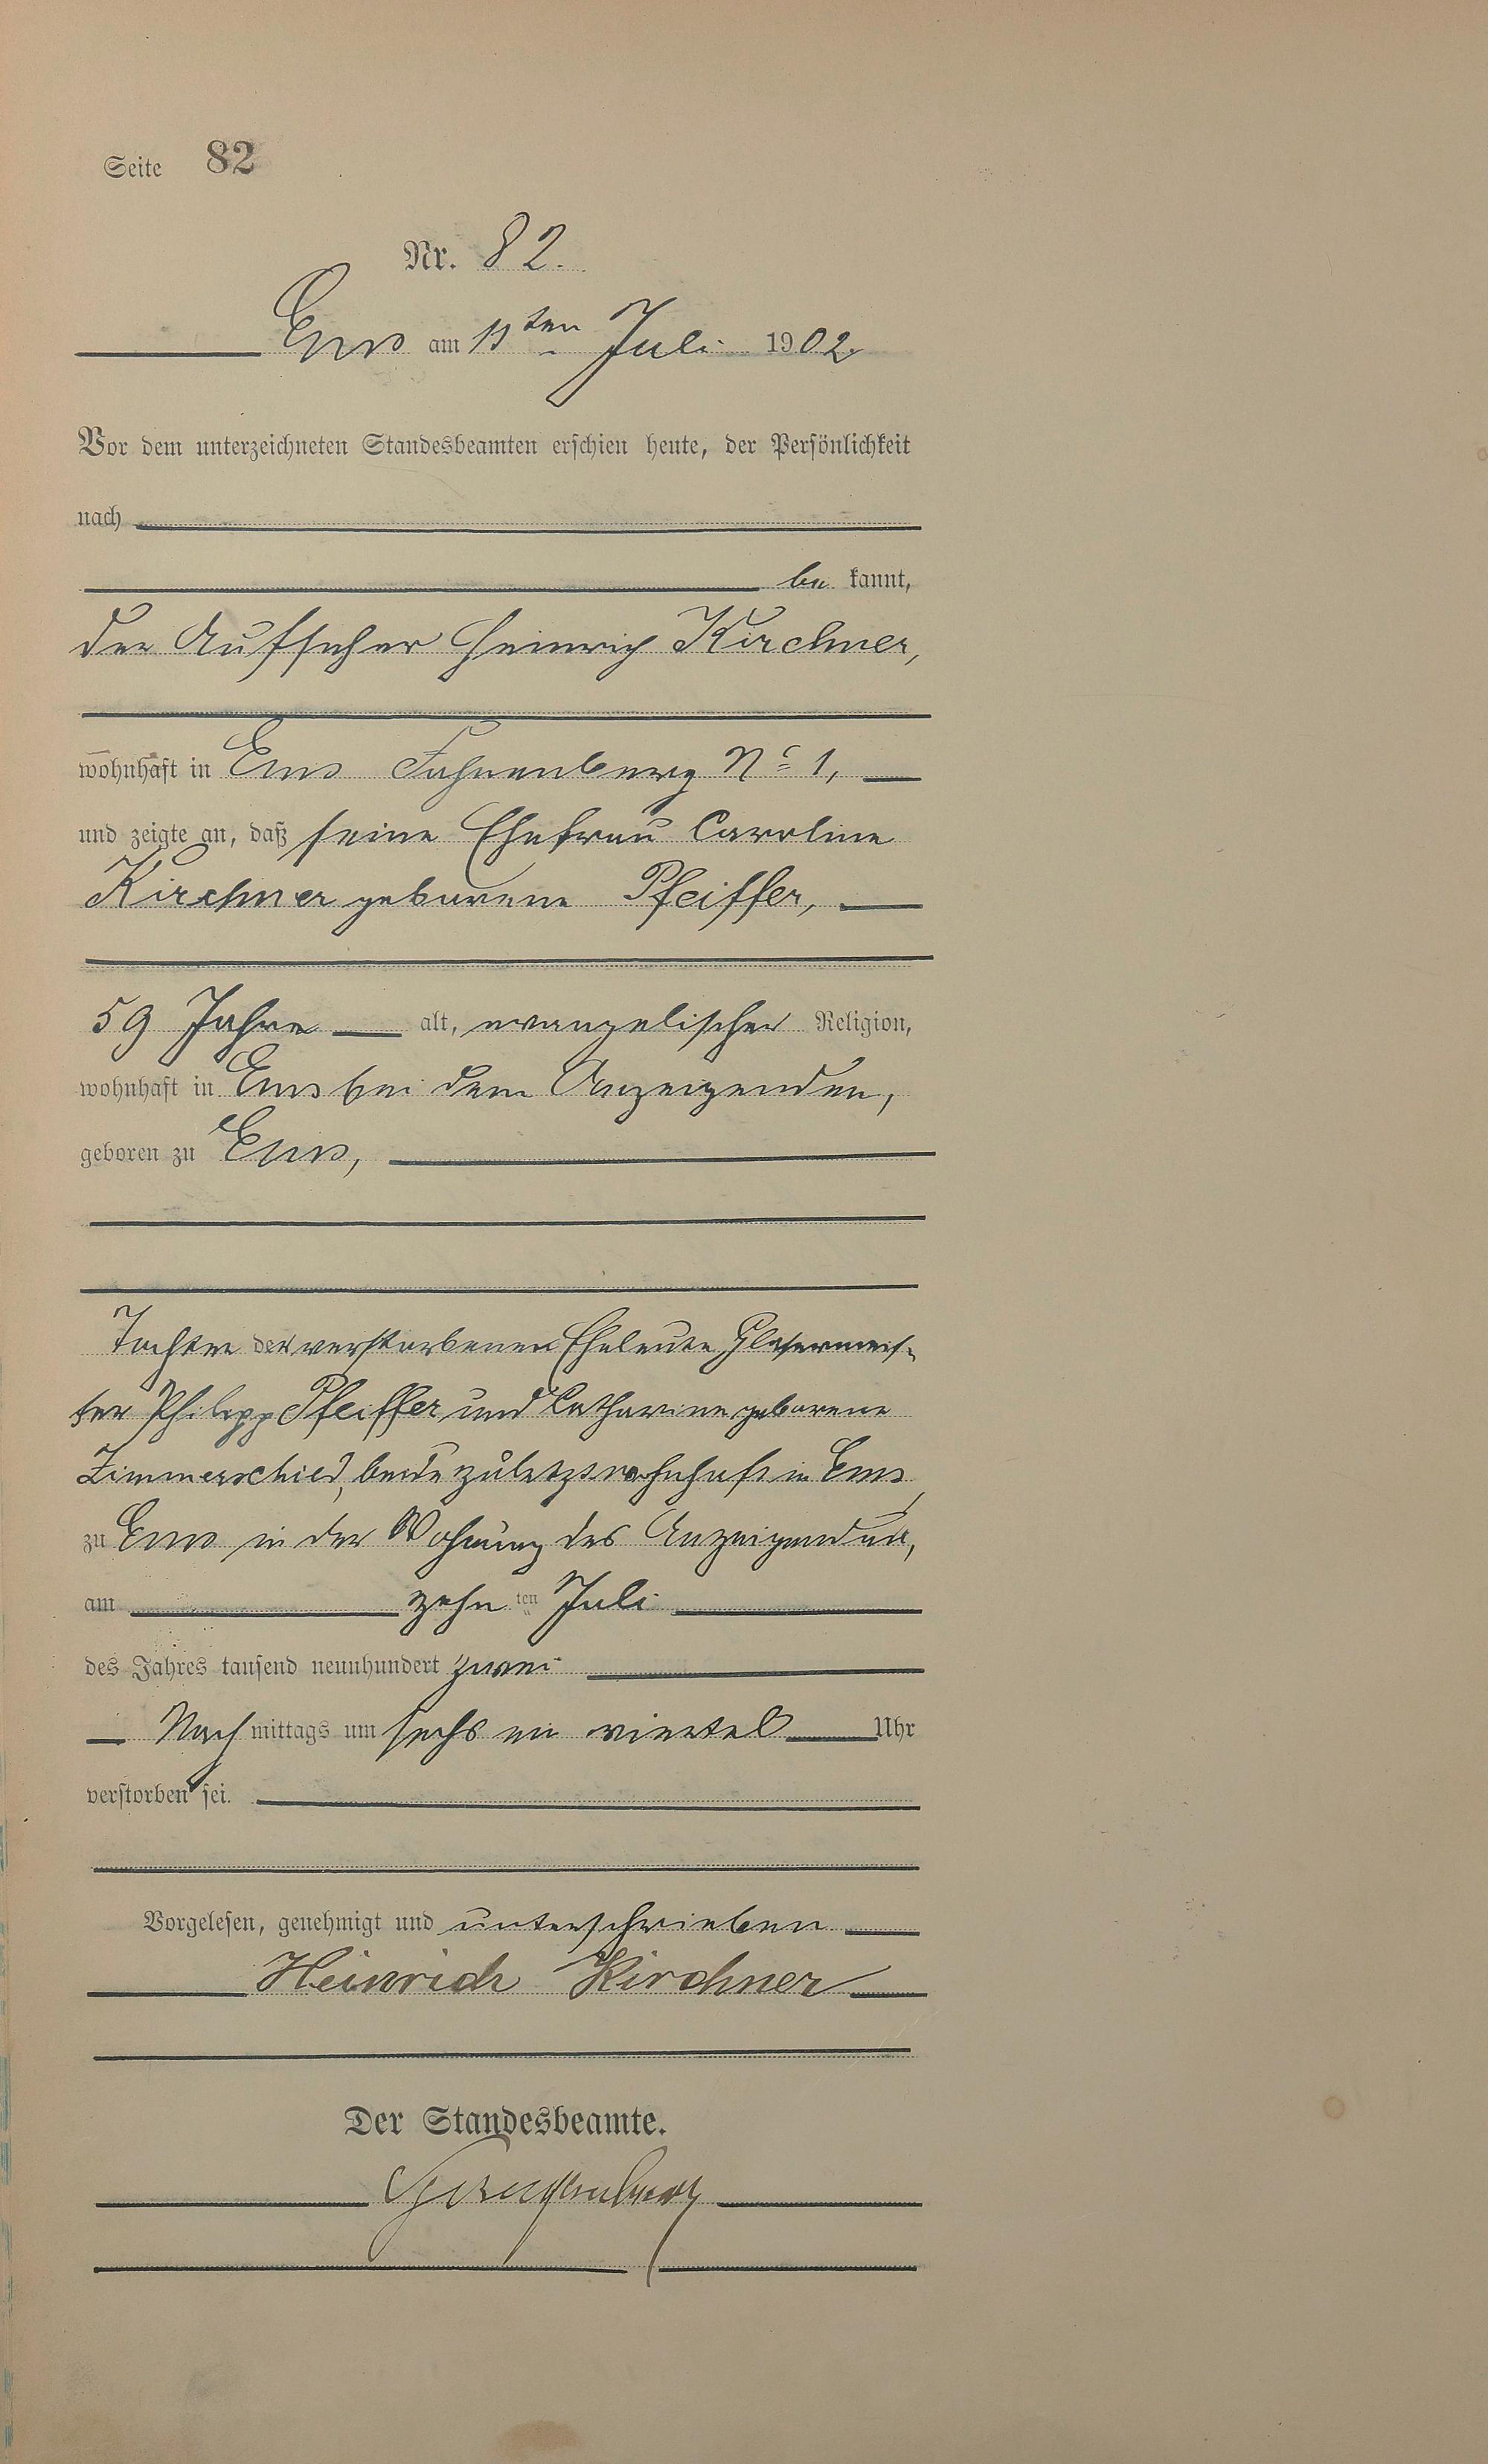 Seite 82
Nr. 82.
Ems am 11ten Juli 1902
Vor dem unterzeichneten Standesbeamten erschien heute, der Persönlichkeit
nach
be kannt,
der Aufseher Heinrich Kirchner,
wohnhaft in Ems Fahnenberg No 1,
und zeigte an, daß seine Ehefrau Caroline
Kirchner geborene Pfeiffer,
59 Jahre alt, evangelischer Religion,
wohnhaft in Ems bei dem Anzeigenden,
geboren zu Ems,
Tochter der verstorbenen Eheleute Glasermeis-
ter Philipp Pfeiffer und Catharine geborene
Zimmerschied, beide zuletzt wohnhaft in Ems
zu Ems in der Wohnung des Anzeigenden,
am zehn ten Juli
des Jahres tausend neunhundert zwei
Nach mittags um sechs ein viertel Uhr
verstorben sei.
Vorgelesen, genehmigt und unterschrieben
Heinrich Kirchner
Der Standesbeamte.